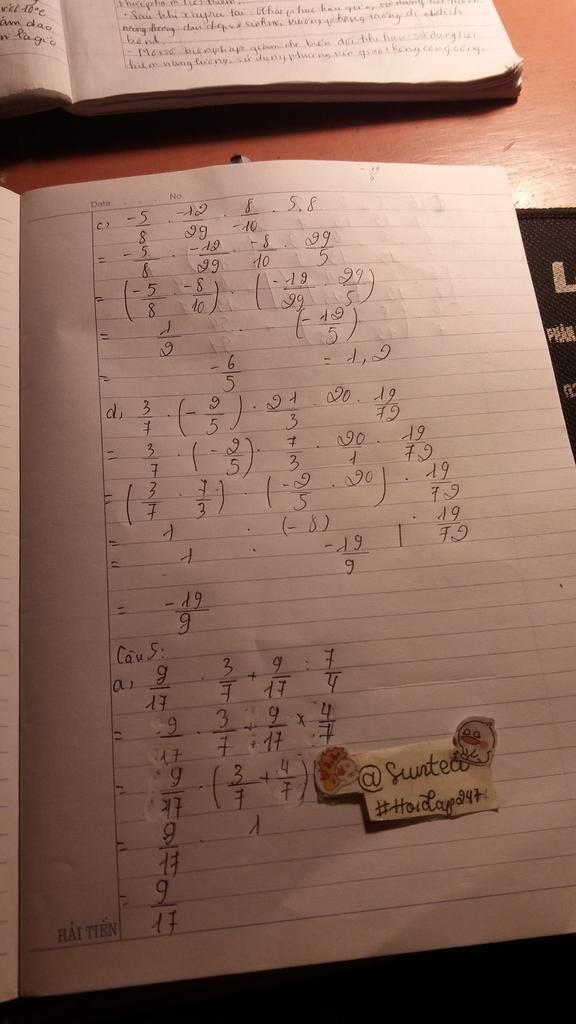 thực phẩm tiết kiệm.
bệnh.
Date No.
c, -5/8 . -12/29 . 8/-10 . 5,8
= -5/8 . -12/29 . -8/10 . 29/5
= (-5/8 . -8/10) . (-12/29 . 29/5)
= 1/2 . (-12/5)
= -6/5 = 1,2
d, 3/7 . (-2/5) . 2 1/3 . 20 . 19/72
= 3/7 . (-2/5) . 7/3 . 20/1 . 19/72
= (3/7 . 7/3) . (-2/5 . 20) . 19/72
= 1 . (-8) . 19/72
= 1 . -19/9
= -19/9
Câu 5:
a, 9/17 . 3/7 + 9/17 : 7/4
= 9/17 . 3/7 + 9/17 x 4/7
= 9/17 . (3/7 + 4/7)
= 9/17 . 1
= 9/17
@Sunteco
#HoiDap247
HẢI TIẾN
L
PHÂN